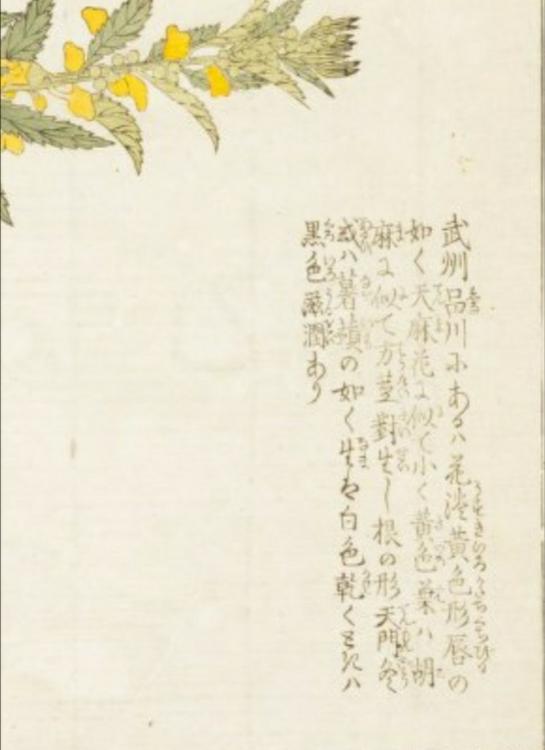 武州品川にあるハ花淡黄色形唇の
如く天麻花に似て小く黄色葉ハ胡
麻に似て方茎對生し根の形天門冬
或ハ薯蕷の如く生は白色乾くときハ
黒色滋潤あり